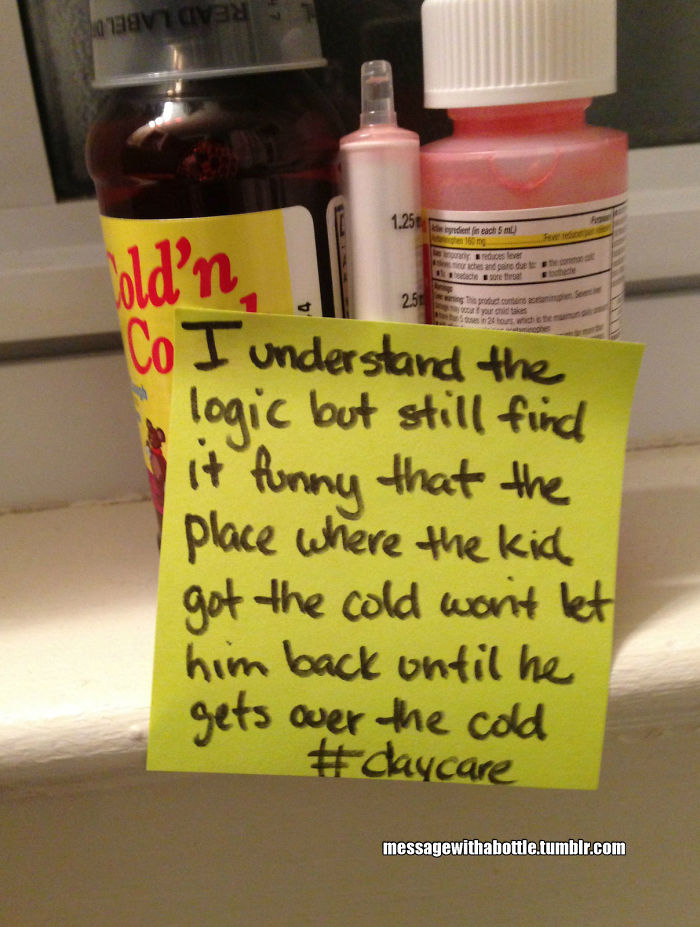 READ LABEL
Cold'n
Co
1.25
2.5
Active ingredient (in each 5 mL)
Acetaminophen 160 mg
Fever reducer/pain reliever
Uses temporarily: ■ reduces fever
■ relieves minor aches and pains due to: ■ the common cold
■ flu ■ headache ■ sore throat ■ toothache
Warnings
Liver warning: This product contains acetaminophen. Severe liver
damage may occur if your child takes
■ more than 5 doses in 24 hours, which is the maximum daily
I understand the
logic but still find
it funny that the
place where the kid
got the cold won't let
him back until he
gets over the cold
#daycare
messagewithabottle.tumblr.com